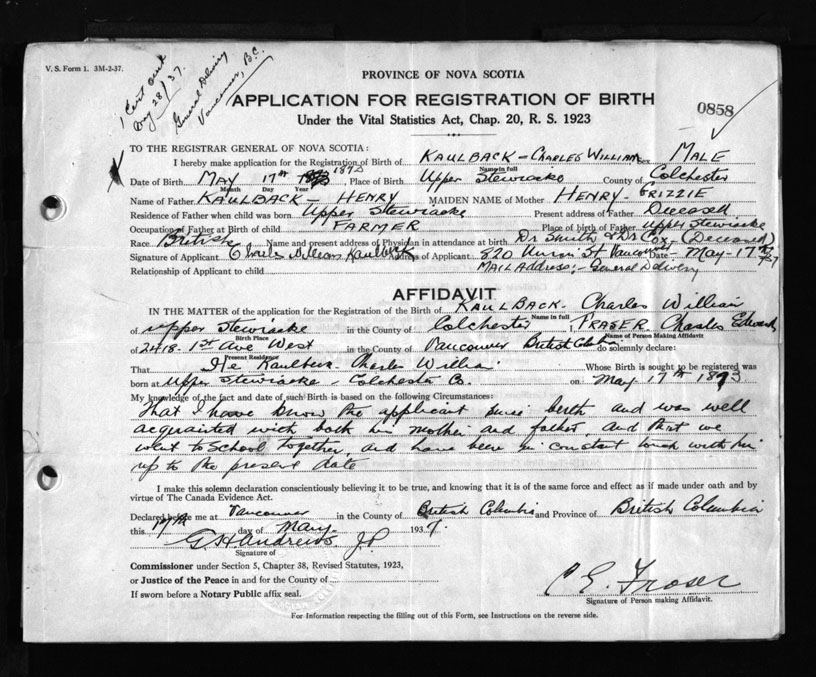 V. S. Form 1. 3M-2-37.
1 Cert out
Aug 28/37.
General Delivery
Vancouver, B.C.
PROVINCE OF NOVA SCOTIA
APPLICATION FOR REGISTRATION OF BIRTH
0858
Under the Vital Statistics Act, Chap. 20, R. S. 1923
TO THE REGISTRAR GENERAL OF NOVA SCOTIA:
I hereby make application for the Registration of Birth of KAULBACK - CHARLES WILLIAM Sex MALE
Name in full
Date of Birth MAY 17th 1893 Place of Birth Upper Stewiacke County of Colchester
Month Day Year
Name of Father KAULBACK - HENRY MAIDEN NAME of Mother HENRY - GRIZZIE
Residence of Father when child was born Upper Stewiacke Present address of Father Deceased
Occupation of Father at Birth of child FARMER Place of birth of Father Upper Stewiacke
Race British Name and present address of Physician in attendance at birth Dr Smith & Dr Cox (Deceased)
Signature of Applicant Charles William Kaulback Address of Applicant 820 Union St Vancouver Date May-17th
Relationship of Applicant to child MAIL Address:- General Delivery
AFFIDAVIT
IN THE MATTER of the application for the Registration of the Birth of KAULBACK - Charles William
Name in full
of Upper Stewiacke in the County of Colchester I, FRASER. Charles Edward
Birth Place Name of Person Making Affidavit
of 2418 - 1st Ave West in the County of Vancouver British Columbia do solemnly declare:
Present Residence
That He Kaulback Charles William Whose Birth is sought to be registered was
born at Upper Stewiacke - Colchester Co. on May 17th 1893
My knowledge of the fact and date of such Birth is based on the following Circumstances:
That I have know the applicant since birth and was well
acquainted with both his mother and father and that we
went to School together, and have been in constant touch with him
up to the present date
I make this solemn declaration conscientiously believing it to be true, and knowing that it is of the same force and effect as if made under oath and by
virtue of The Canada Evidence Act.
Declared before me at Vancouver in the County of British Columbia and Province of British Columbia
this 17th day of May 1937.
G H Andrews JP
Signature of
Commissioner under Section 5, Chapter 38, Revised Statutes, 1923,
or Justice of the Peace in and for the County of
C E. Fraser
Signature of Person making Affidavit.
If sworn before a Notary Public affix seal.
For Information respecting the filling out of this Form, see Instructions on the reverse side.